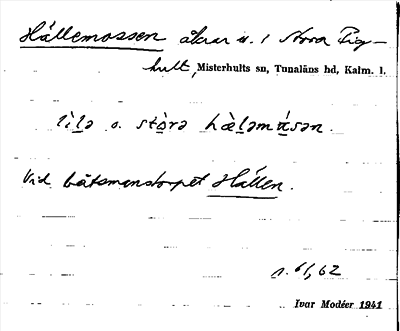 Hällemossen åkrar o. i Norra Fig-
hult, Misterhults sn, Tunaläns hd, Kalm. l.
lìlə o. stòrə hæ̀ləmɷ́sən.
Vid båtsmanstorpet Hällen.
s. 61, 62
Ivar Modéer 1941